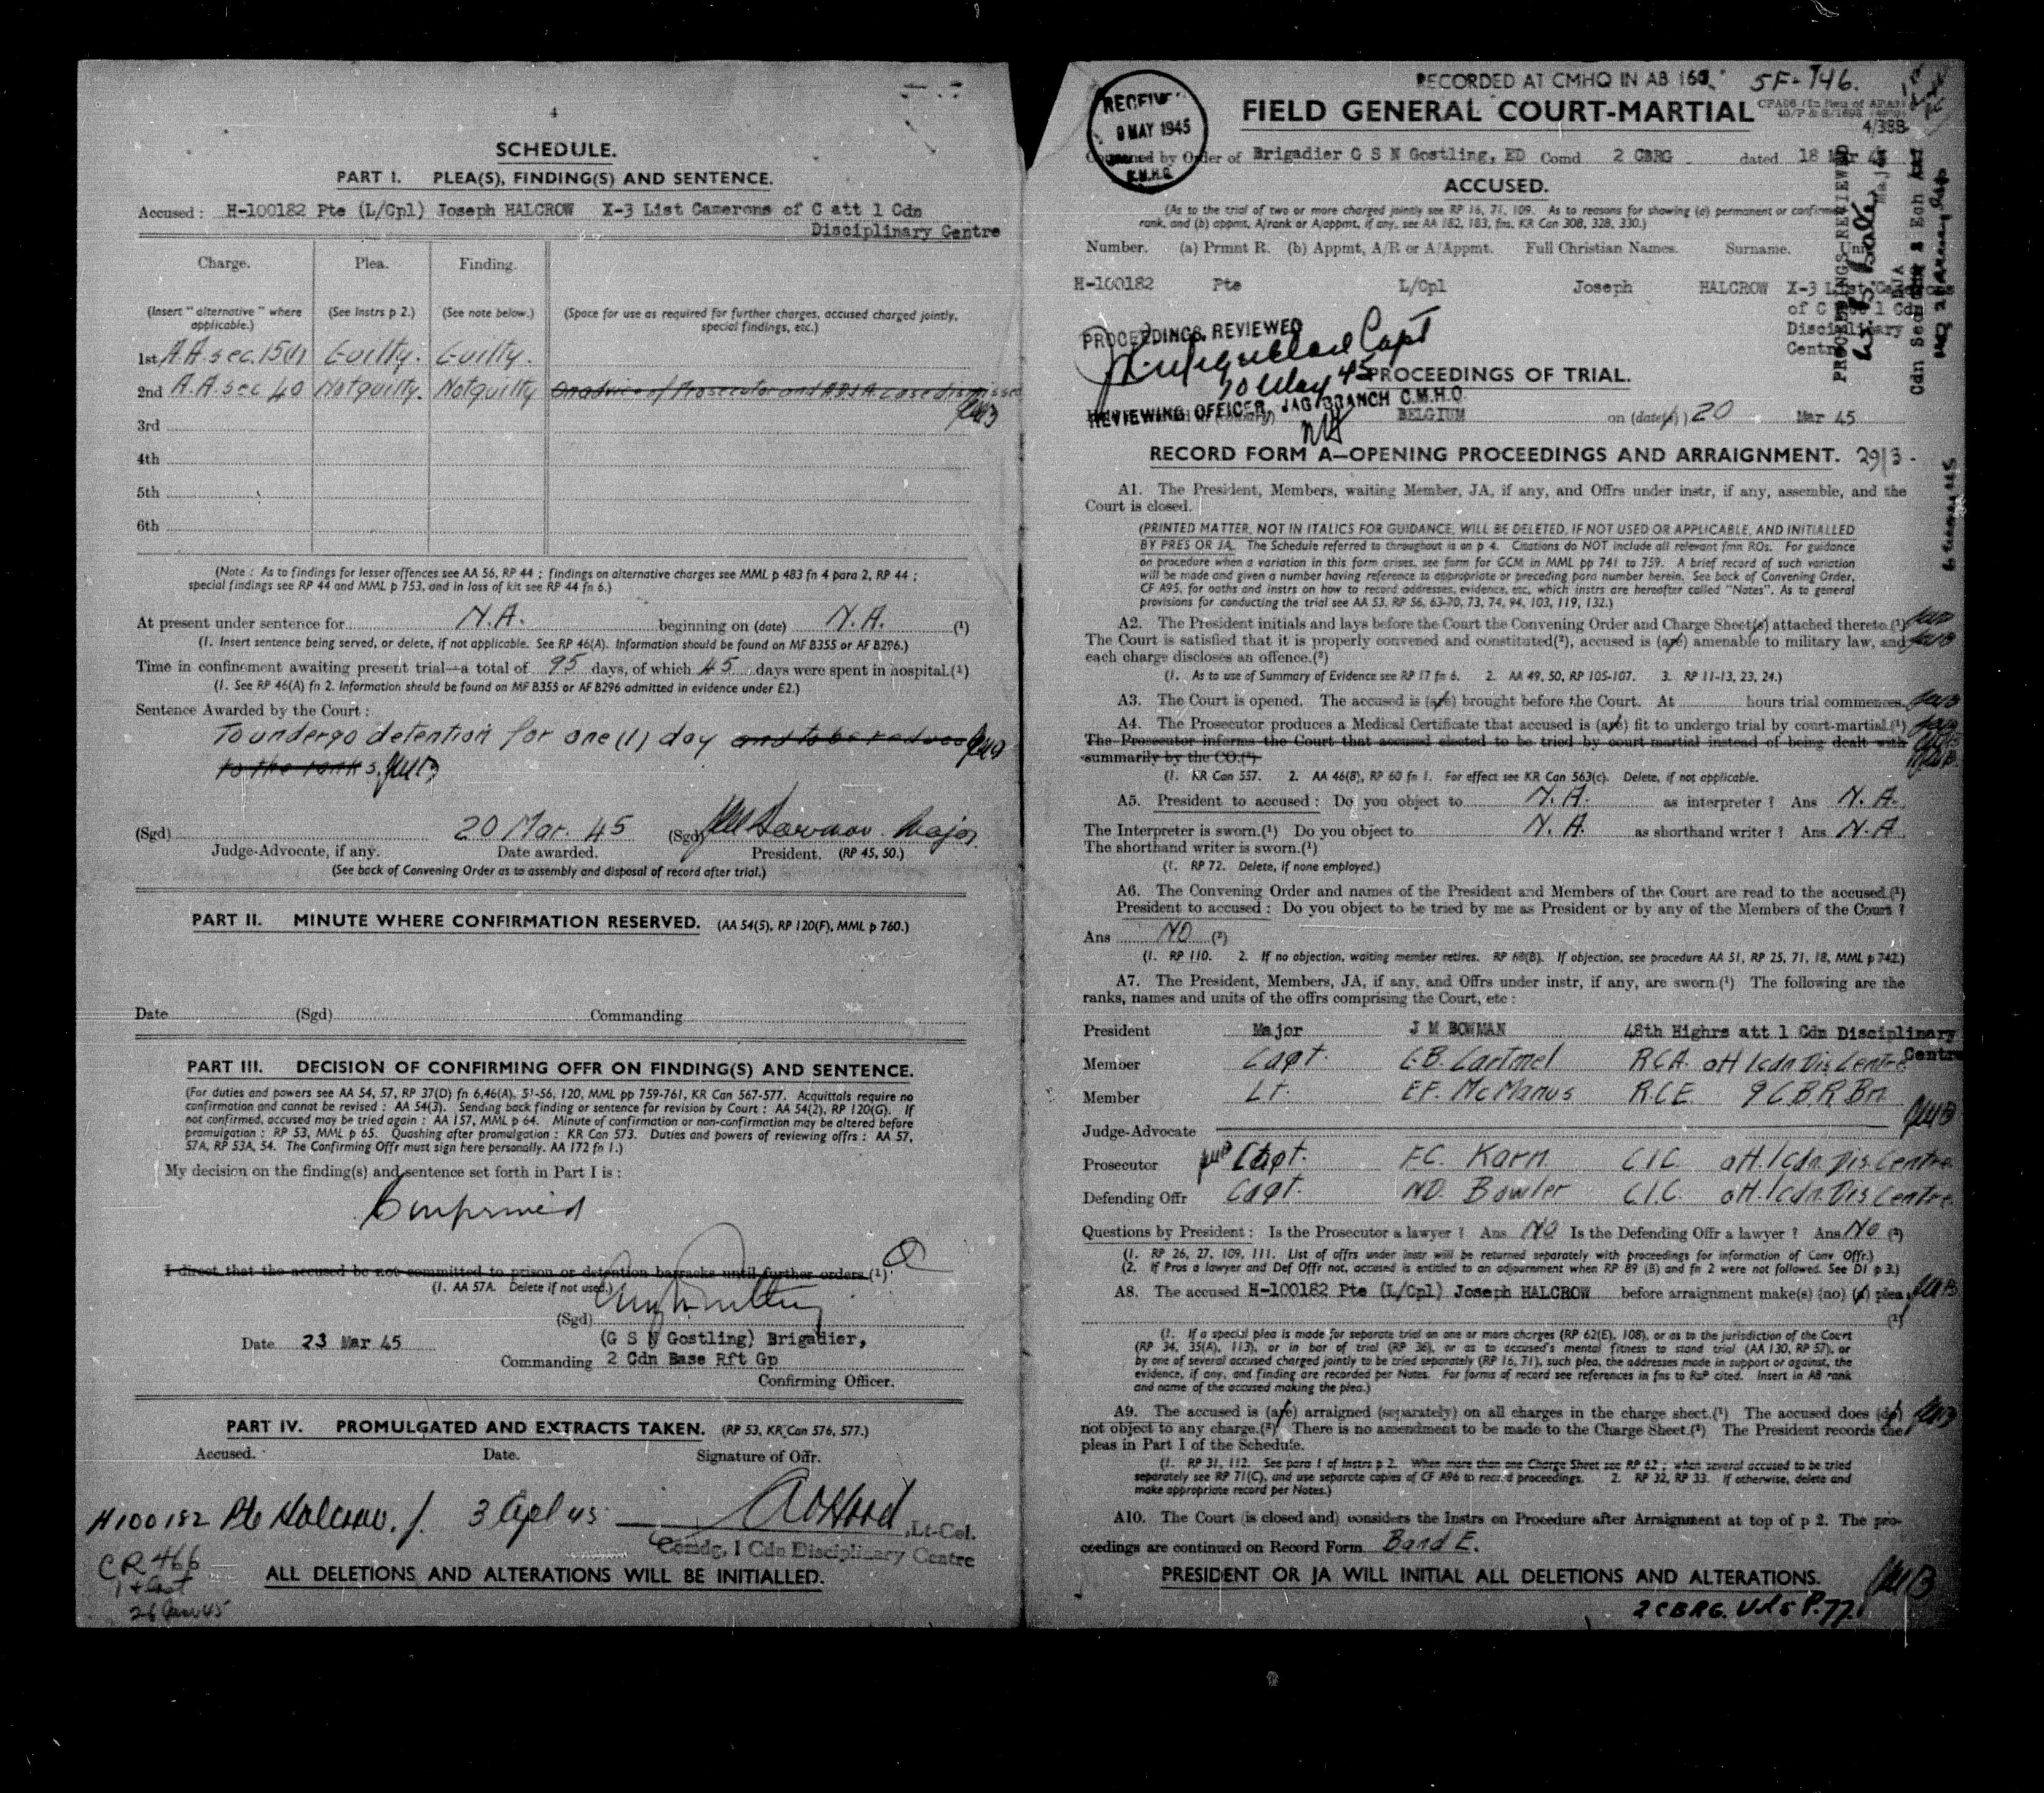 4
SCHEDULE.
PART I. PLEA(S), FINDING(S) AND SENTENCE.
Accused : H-100182 Pte (L/Cpl) Joseph HALCROW X-3 List Camerons of C att 1 Cdn
Disciplinary Centre
Charge. Plea. Finding.
(Insert "alternative" where applicable.) (See Instrs p 2.) (See note below.) (Space for use as required for further charges, accused charged jointly, special findings, etc.)
1st A.A. sec. 15(1) Guilty. Guilty.
2nd A.A. sec 40 Not guilty. Not guilty On advice of Prosecutor and case dismissed
3rd
4th
5th
6th
(Note : As to findings for lesser offences see AA 56, RP 44 ; findings on alternative charges see MML p 483 fn 4 para 2, RP 44 ;
special findings see RP 44 and MML p 753, and in loss of kit see RP 44 fn 6.)
At present under sentence for N.A. beginning on (date) N.A. (1)
(1. Insert sentence being served, or delete, if not applicable. See RP 46(A). Information should be found on MF B355 or AF B296.)
Time in confinement awaiting present trial—a total of 95 days, of which 45 days were spent in hospital.(1)
(1. See RP 46(A) fn 2. Information should be found on MF B355 or AF B296 admitted in evidence under E2.)
Sentence Awarded by the Court :
To undergo detention for one (1) day and to be reduced
to the ranks. JMB
(Sgd) 20 Mar. 45 (Sgd) JM Bowman Major
Judge-Advocate, if any. Date awarded. President. (RP 45, 50.)
(See back of Convening Order as to assembly and disposal of record after trial.)
PART II. MINUTE WHERE CONFIRMATION RESERVED. (AA 54(5), RP 120(F), MML p 760.)
Date (Sgd) Commanding
PART III. DECISION OF CONFIRMING OFFR ON FINDING(S) AND SENTENCE.
(For duties and powers see AA 54, 57, RP 37(D) fn 6,46(A), 51-56, 120, MML pp 759-761, KR Can 567-577. Acquittals require no
confirmation and cannot be revised : AA 54(3). Sending back finding or sentence for revision by Court : AA 54(2), RP 120(G). If
not confirmed, accused may be tried again : AA 157, MML p 64. Minute of confirmation or non-confirmation may be altered before
promulgation : RP 53, MML p 65. Quashing after promulgation : KR Can 573. Duties and powers of reviewing offrs : AA 57,
57A, RP 53A, 54. The Confirming Offr must sign here personally. AA 172 fn 1.)
My decision on the finding(s) and sentence set forth in Part I is :
Confirmed
I direct that the accused be not committed to prison or detention barracks until further orders.(1)
(1. AA 57A. Delete if not used.)
(Sgd)
(G S N Gostling) Brigadier,
Date 23 Mar 45
Commanding 2 Cdn Base Rft Gp
Confirming Officer.
PART IV. PROMULGATED AND EXTRACTS TAKEN. (RP 53, KR Can 576, 577.)
Accused. Date. Signature of Offr.
H100182 Pte Halcrow. J. 3 Apl 45 ,Lt-Col.
Comdg, 1 Cdn Disciplinary Centre
CR 466
26 Jan 45
ALL DELETIONS AND ALTERATIONS WILL BE INITIALLED.
RECORDED AT CMHQ IN AB 160. 5F-746.
RECEIVED
9 MAY 1945
C.M.H.Q.
FIELD GENERAL COURT-MARTIAL
4/388
Convened by Order of Brigadier G S N Gostling, ED Comd 2 CBRG dated 18 Mar 45
ACCUSED.
(As to the trial of two or more charged jointly see RP 16, 71, 109. As to reasons for showing (a) permanent or confirmed
rank, and (b) appmt, A/rank or A/appmt, if any, see AA 182, 183, fns, KR Can 308, 328, 330.)
Number. (a) Prmnt R. (b) Appmt, A/R or A/Appmt. Full Christian Names. Surname. Unit
H-100182 Pte L/Cpl Joseph HALCROW X-3 List Camerons
of C att 1 Cdn
Disciplinary
Centre
PROCEEDINGS REVIEWED
Capt
10 May 45
REVIEWING OFFICER, JAG BRANCH C.M.H.Q.
PROCEEDINGS REVIEWED
Major
PROCEEDINGS OF TRIAL.
BELGIUM on (date) 20 Mar 45
RECORD FORM A—OPENING PROCEEDINGS AND ARRAIGNMENT. 29/3.
A1. The President, Members, waiting Member, JA, if any, and Offrs under instr, if any, assemble, and the
Court is closed.
(PRINTED MATTER, NOT IN ITALICS FOR GUIDANCE, WILL BE DELETED, IF NOT USED OR APPLICABLE, AND INITIALLED
BY PRES OR JA. The Schedule referred to throughout is on p 4. Citations do NOT include all relevant fmn ROs. For guidance
on procedure when a variation in this form arises, see form for GCM in MML pp 741 to 759. A brief record of such variation
will be made and given a number having reference to appropriate or preceding para number herein. See back of Convening Order,
CF A95, for oaths and instrs on how to record addresses, evidence, etc, which instrs are hereafter called "Notes". As to general
provisions for conducting the trial see AA 53, RP 56, 63-70, 73, 74, 94, 103, 119, 132.)
A2. The President initials and lays before the Court the Convening Order and Charge Sheet(s) attached thereto.(1)
The Court is satisfied that it is properly convened and constituted(2), accused is (are) amenable to military law, and
each charge discloses an offence.(3)
(1. As to use of Summary of Evidence see RP 17 fn 6. 2. AA 49, 50, RP 105-107. 3. RP 11-13, 23, 24.)
A3. The Court is opened. The accused is (are) brought before the Court. At hours trial commences.
A4. The Prosecutor produces a Medical Certificate that accused is (are) fit to undergo trial by court-martial.(1)
The Prosecutor informs the Court that accused elected to be tried by court-martial instead of being dealt with
summarily by the CO.(2)
(1. KR Can 557. 2. AA 46(8), RP 60 fn 1. For effect see KR Can 563(c). Delete, if not applicable.
A5. President to accused : Do you object to N.A. as interpreter ? Ans N.A.
The Interpreter is sworn.(1) Do you object to N.A. as shorthand writer ? Ans N.A
The shorthand writer is sworn.(1)
(1. RP 72. Delete, if none employed.)
A6. The Convening Order and names of the President and Members of the Court are read to the accused.(1)
President to accused : Do you object to be tried by me as President or by any of the Members of the Court ?
Ans NO (2)
(1. RP 110. 2. If no objection, waiting member retires. RP 68(B). If objection, see procedure AA 51, RP 25, 71, 18, MML p 742.)
A7. The President, Members, JA, if any, and Offrs under instr, if any, are sworn.(1) The following are the
ranks, names and units of the offrs comprising the Court, etc :
President Major J M BOWMAN 48th Highrs att 1 Cdn Disciplinary
Centre
Member Capt. C.B. Cartmel RCA att 1 cdn Dis Centre
Member Lt. E.F. McManus RCE 9 C.B.R. Bn
Judge-Advocate JMB
Prosecutor Capt. F.C. Karn C.I.C. att. 1 Cdn. Dis Centre
Defending Offr Capt. N.D. Bowler C.I.C. att. 1 cdn. Dis Centre
Questions by President : Is the Prosecutor a lawyer ? Ans NO Is the Defending Offr a lawyer ? Ans NO (2)
(1. RP 26, 27, 109, 111. List of offrs under instr will be returned separately with proceedings for information of Conv Offr.)
(2. If Pros a lawyer and Def Offr not, accused is entitled to an adjournment when RP 89 (B) and fn 2 were not followed. See D1 p 3.)
A8. The accused H-100182 Pte (L/Cpl) Joseph HALCROW before arraignment make(s) (no) (a) plea
(1. If a special plea is made for separate trial on one or more charges (RP 62(E), 108), or as to the jurisdiction of the Court
(RP 34, 35(A), 113), or in bar of trial (RP 36), or as to accused's mental fitness to stand trial (AA 130, RP 57), or
by one of several accused charged jointly to be tried separately (RP 16, 71), such plea, the addresses made in support or against, the
evidence, if any, and finding are recorded per Notes. For forms of record see references in fns to RsP cited. Insert in A8 rank
and name of the accused making the plea.)
A9. The accused is (are) arraigned (separately) on all charges in the charge sheet.(1) The accused does (do)
not object to any charge.(2) There is no amendment to be made to the Charge Sheet.(2) The President records the
pleas in Part I of the Schedule.
(1. RP 31, 112. See para 1 of Instrs p 2. When more than one Charge Sheet see RP 62 ; when several accused to be tried
separately see RP 71(C), and use separate copies of CF A96 to record proceedings. 2. RP 32, RP 33. If otherwise, delete and
make appropriate record per Notes.)
A10. The Court (is closed and) considers the Instrs on Procedure after Arraignment at top of p 2. The pro-
ceedings are continued on Record Form B and E.
PRESIDENT OR JA WILL INITIAL ALL DELETIONS AND ALTERATIONS. JMB
2 CBRG. Vol 5 P.77.